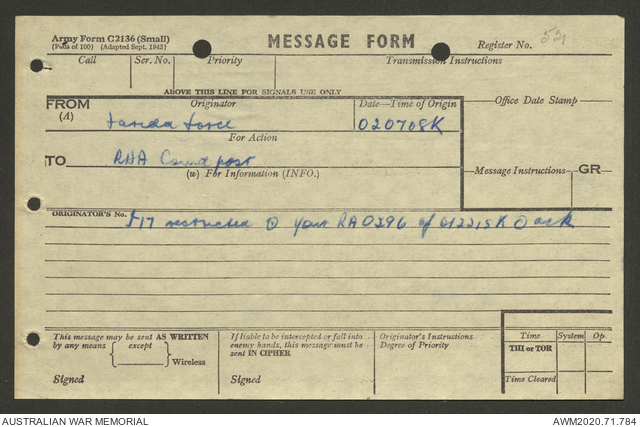 Army Form C2136 (Small)
(Pads of 100) (Adapted Sept. 1943)
MESSAGE FORM
Register No. 521
Call Ser. No. Priority Transmission Instructions
ABOVE THIS LINE FOR SIGNALS USE ONLY
FROM
(A)
Originator
Date—Time of Origin
Office Date Stamp
force 020708K
For Action
TO RHA Comd post
(w) For Information (INFO.)
Message Instructions GR
ORIGINATOR'S No. F17 restricted ⊙ your RA0296 of 012215K ⊙ ack
This message may be sent AS WRITTEN
by any means except
Wireless
Signed
If liable to be intercepted or fall into
enemy hands, this message must be
sent IN CIPHER
Signed
Originator's Instructions
Degree of Priority
Time System Op
THI or TOR
Time Cleared
AUSTRALIAN WAR MEMORIAL AWM2020.71.784